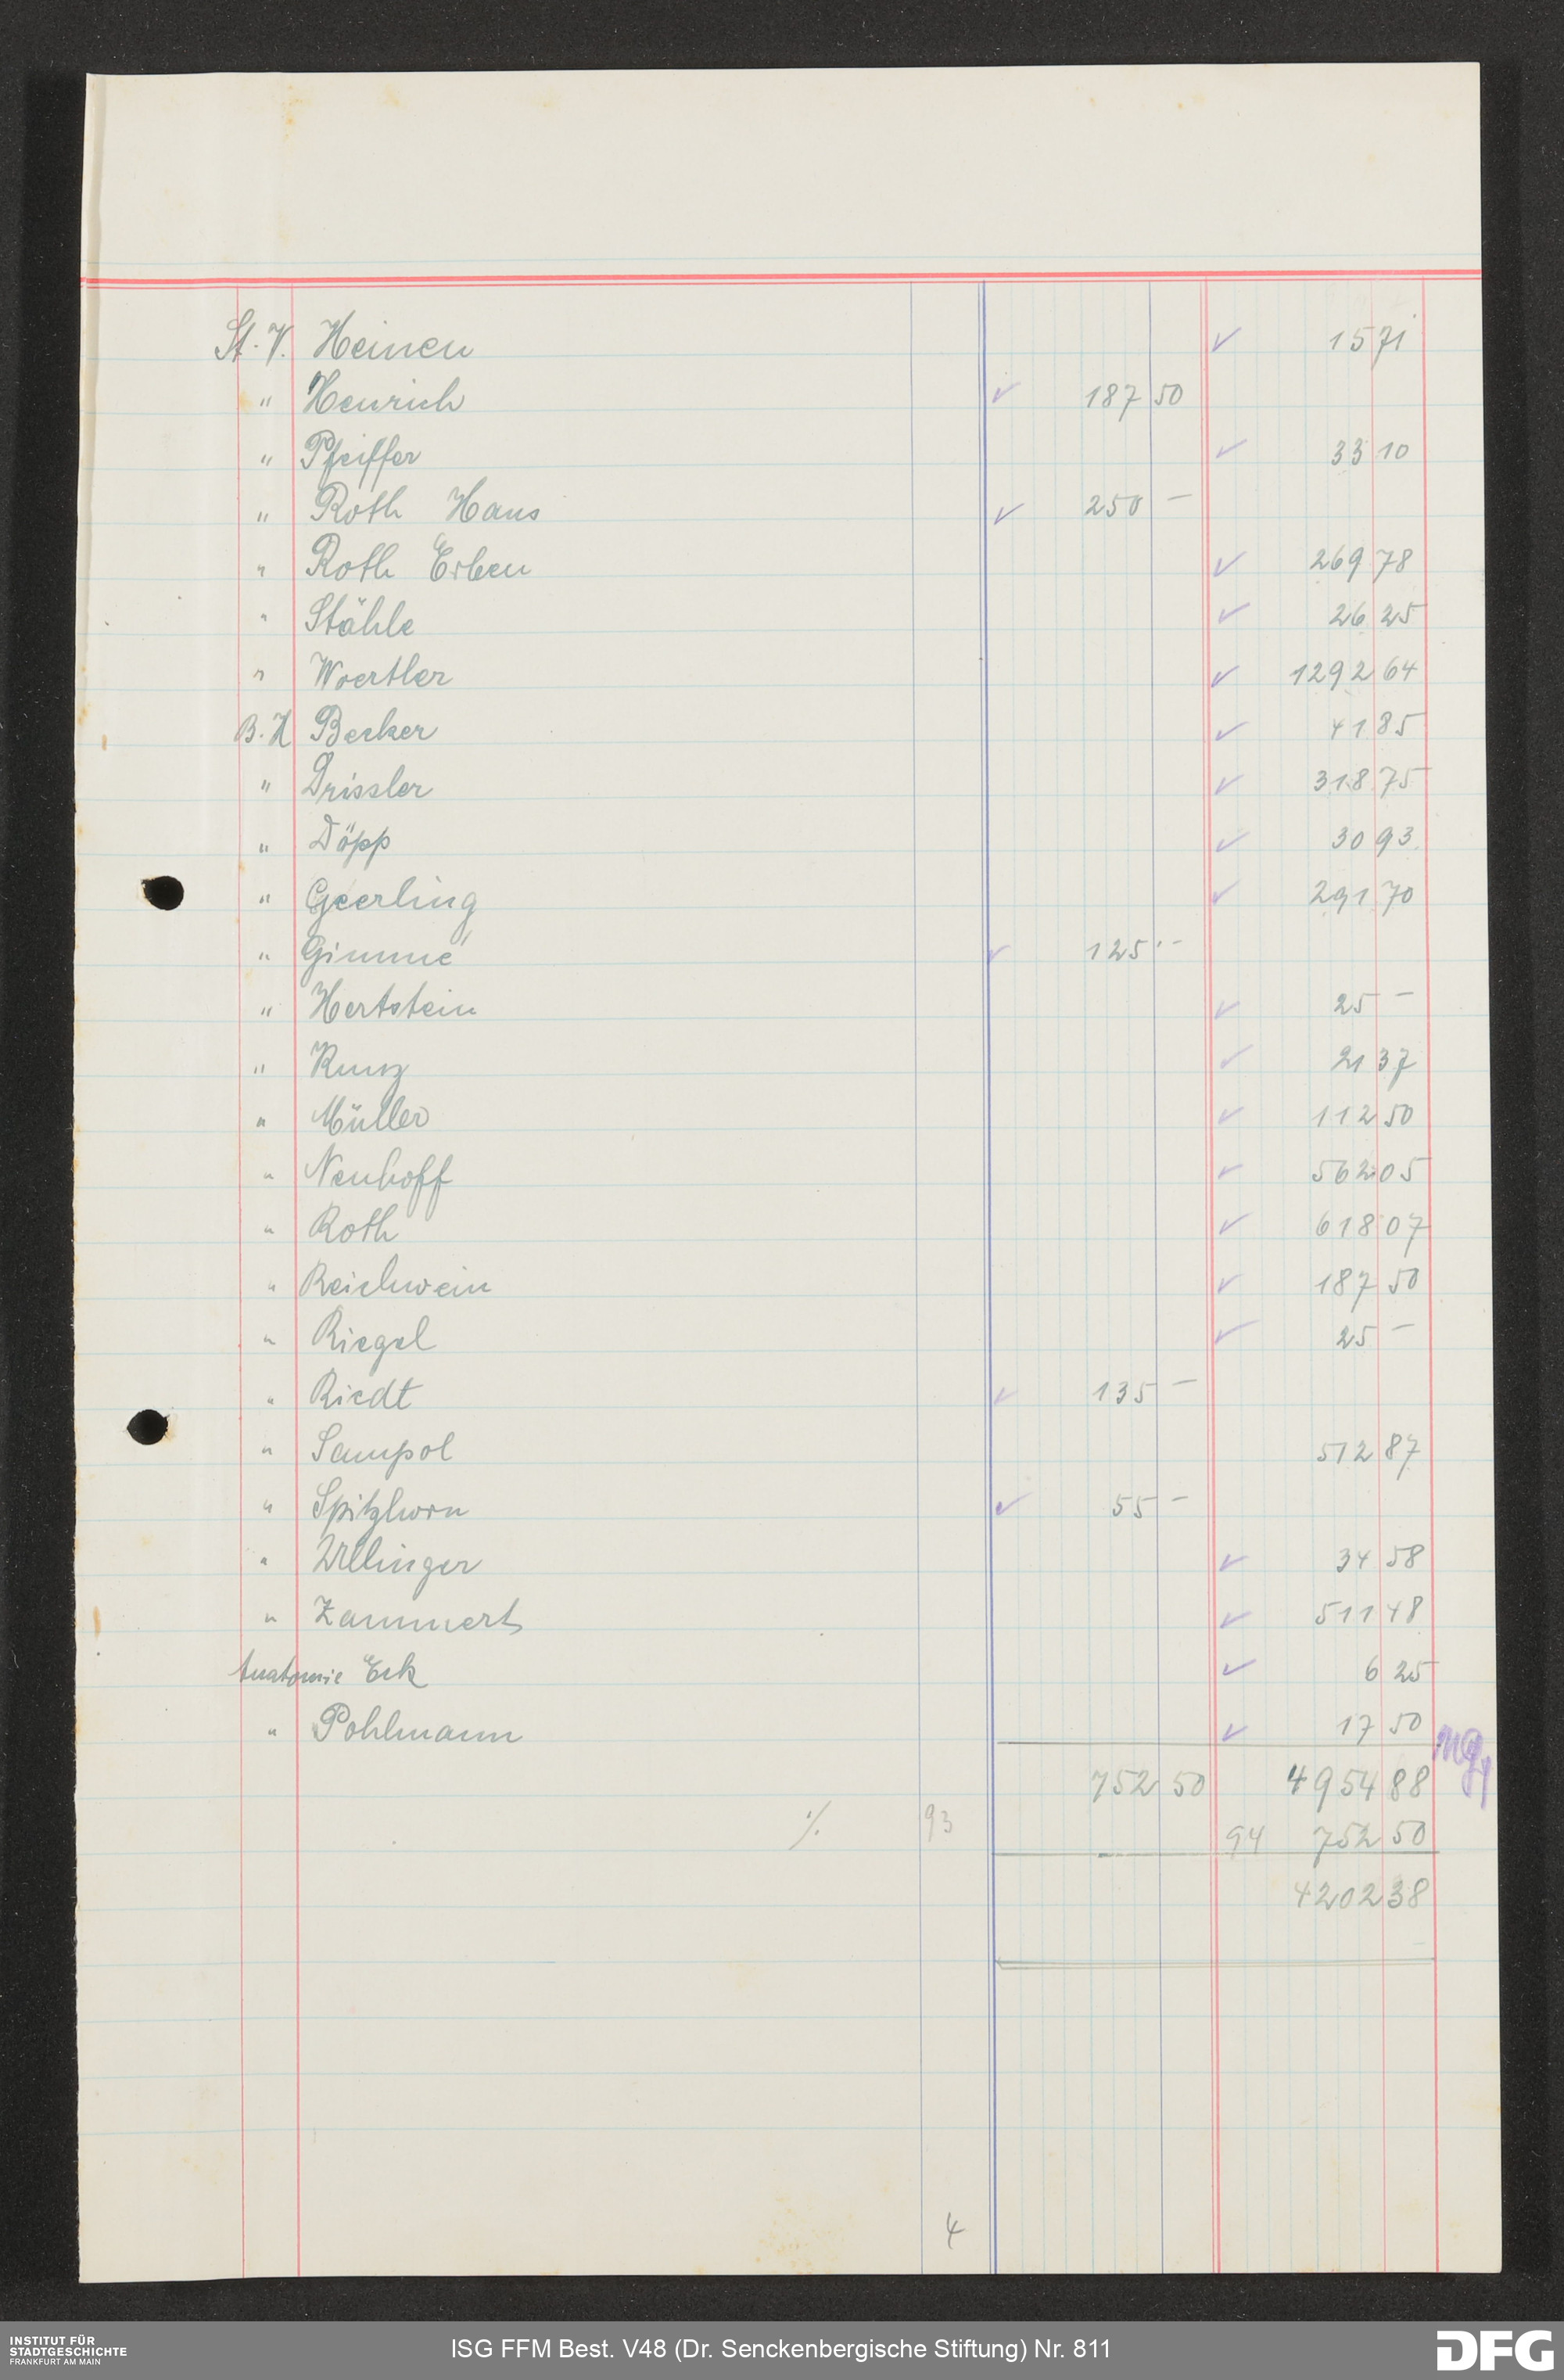 St. V. Heinen ✓ 15 71
" Henrich ✓ 187 50
" Pfeiffer ✓ 33 10
" Roth Hans ✓ 250 –
" Roth Erben ✓ 269 78
" Stähle ✓ 26 25
" Woertler ✓ 1292 64
B. H Becker ✓ 41 85
" Drissler ✓ 318 75
" Döpp ✓ 30 93
" Geerling ✓ 291 70
" Gimmé ✓ 125 –
" Hertstein ✓ 25 –
" Kunz ✓ 21 37
" Müller ✓ 112 50
" Neuhoff ✓ 562 05
" Roth ✓ 618 07
" Reichwein ✓ 187 50
" Riegel ✓ 25 –
" Riedt ✓ 135 –
" Sampol 512 87
" Spitzhorn ✓ 55 –
" Ullinger ✓ 34 58
" Zammert ✓ 511 48
Anatomie Eck ✓ 6 25
" Pohlmann ✓ 17 50
752 50 4954 88
./. 93 94 752 50
4202 38
4
INSTITUT FÜR
STADTGESCHICHTE
FRANKFURT AM MAIN
ISG FFM Best. V48 (Dr. Senckenbergische Stiftung) Nr. 811
DFG